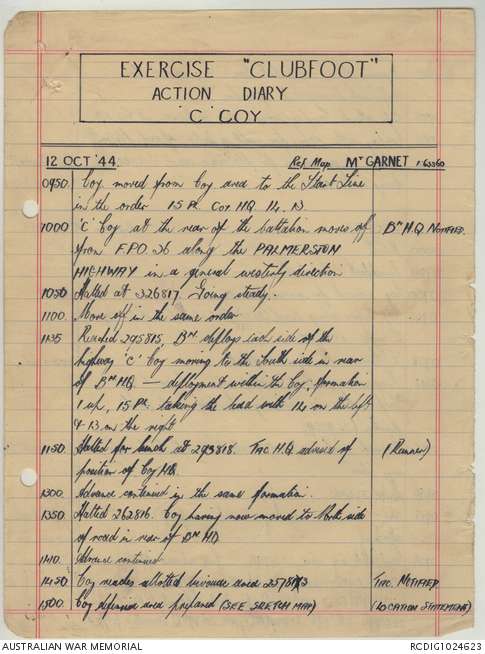 EXERCISE "CLUBFOOT"
ACTION DIARY
'C' COY
12 OCT '44. Ref. Map Mᵗ GARNET 1:63360
0950 Coy. moved from Coy area to the Start Line
in the order 15 Pl. Coy HQ 14. 13
1000 'C' Coy at the rear of the battalion moves off Bⁿ H.Q NOTIFIED.
from F.P.O. 36 along the PALMERSTON
HIGHWAY in a general westerly direction
1050 Halted at 326817. Going steady.
1100 Move off in the same order
1135 Reached 295815, Bⁿ deploy each side of the
highway 'C' Coy moving to the South side in rear
of Bⁿ HQ — deployment within the Coy. formation
1 up, 15 Pl. taking the lead with 14 on the left
& 13 on the right
1150 Halted for lunch at 293818. TAC. H.Q advised of (Runner)
position of Coy HQ.
1300 Advance continued in the same formation.
1350 Halted 262816. Coy having now moved to North side
of road in rear of Bⁿ HQ
1410. Advance continued
1450 Coy reaches allotted bivouac area 257813 TAC. NOTIFIED
1500 Coy defensive area prepared (SEE SKETCH MAP) (LOCATION STATEMENT)
AUSTRALIAN WAR MEMORIAL RCDIG1024623